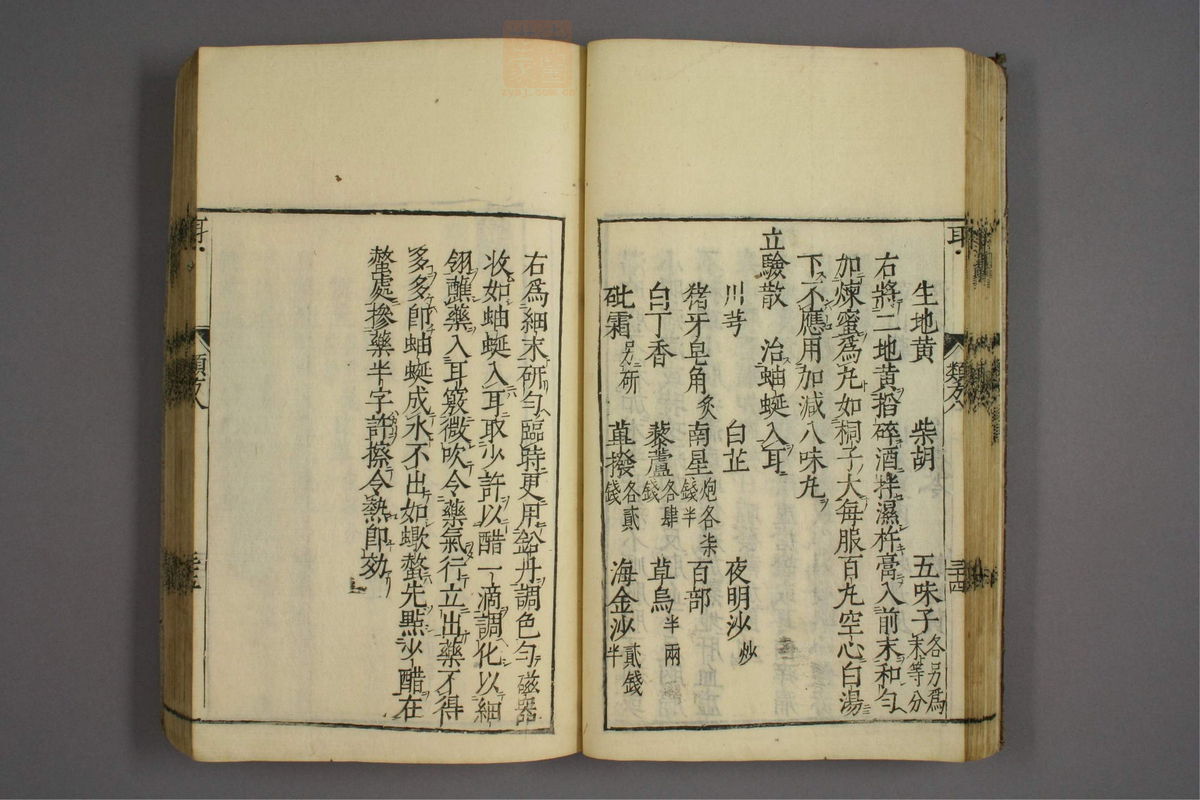 耳
類方八
三十四
生地黄　柴胡　五味子各另爲末等分
右將二地黄搗碎酒拌濕杵膏入前末和勻
加煉蜜爲丸如桐子大每服百丸空心白湯
下不應用加減八味丸
立驗散　治蚰蜒入耳
川芎　白芷　夜明沙炒
猪牙皂角炙　南星炮各柒錢半　百部
白丁香　藜蘆各肆錢　草烏半兩
砒霜另研　蓽撥各貳錢　海金沙貳錢半
右爲細末研勻臨時更用鉛丹調色勻磁器
收如蚰蜒入耳取少許以醋一滴調化以細
翎蘸藥入耳竅微吹令藥氣行立出藥不得
多多即蚰蜒成水不出如蠍螫先點少醋在
螫處摻藥半字許擦令熱即効
耳
類方八
三十五